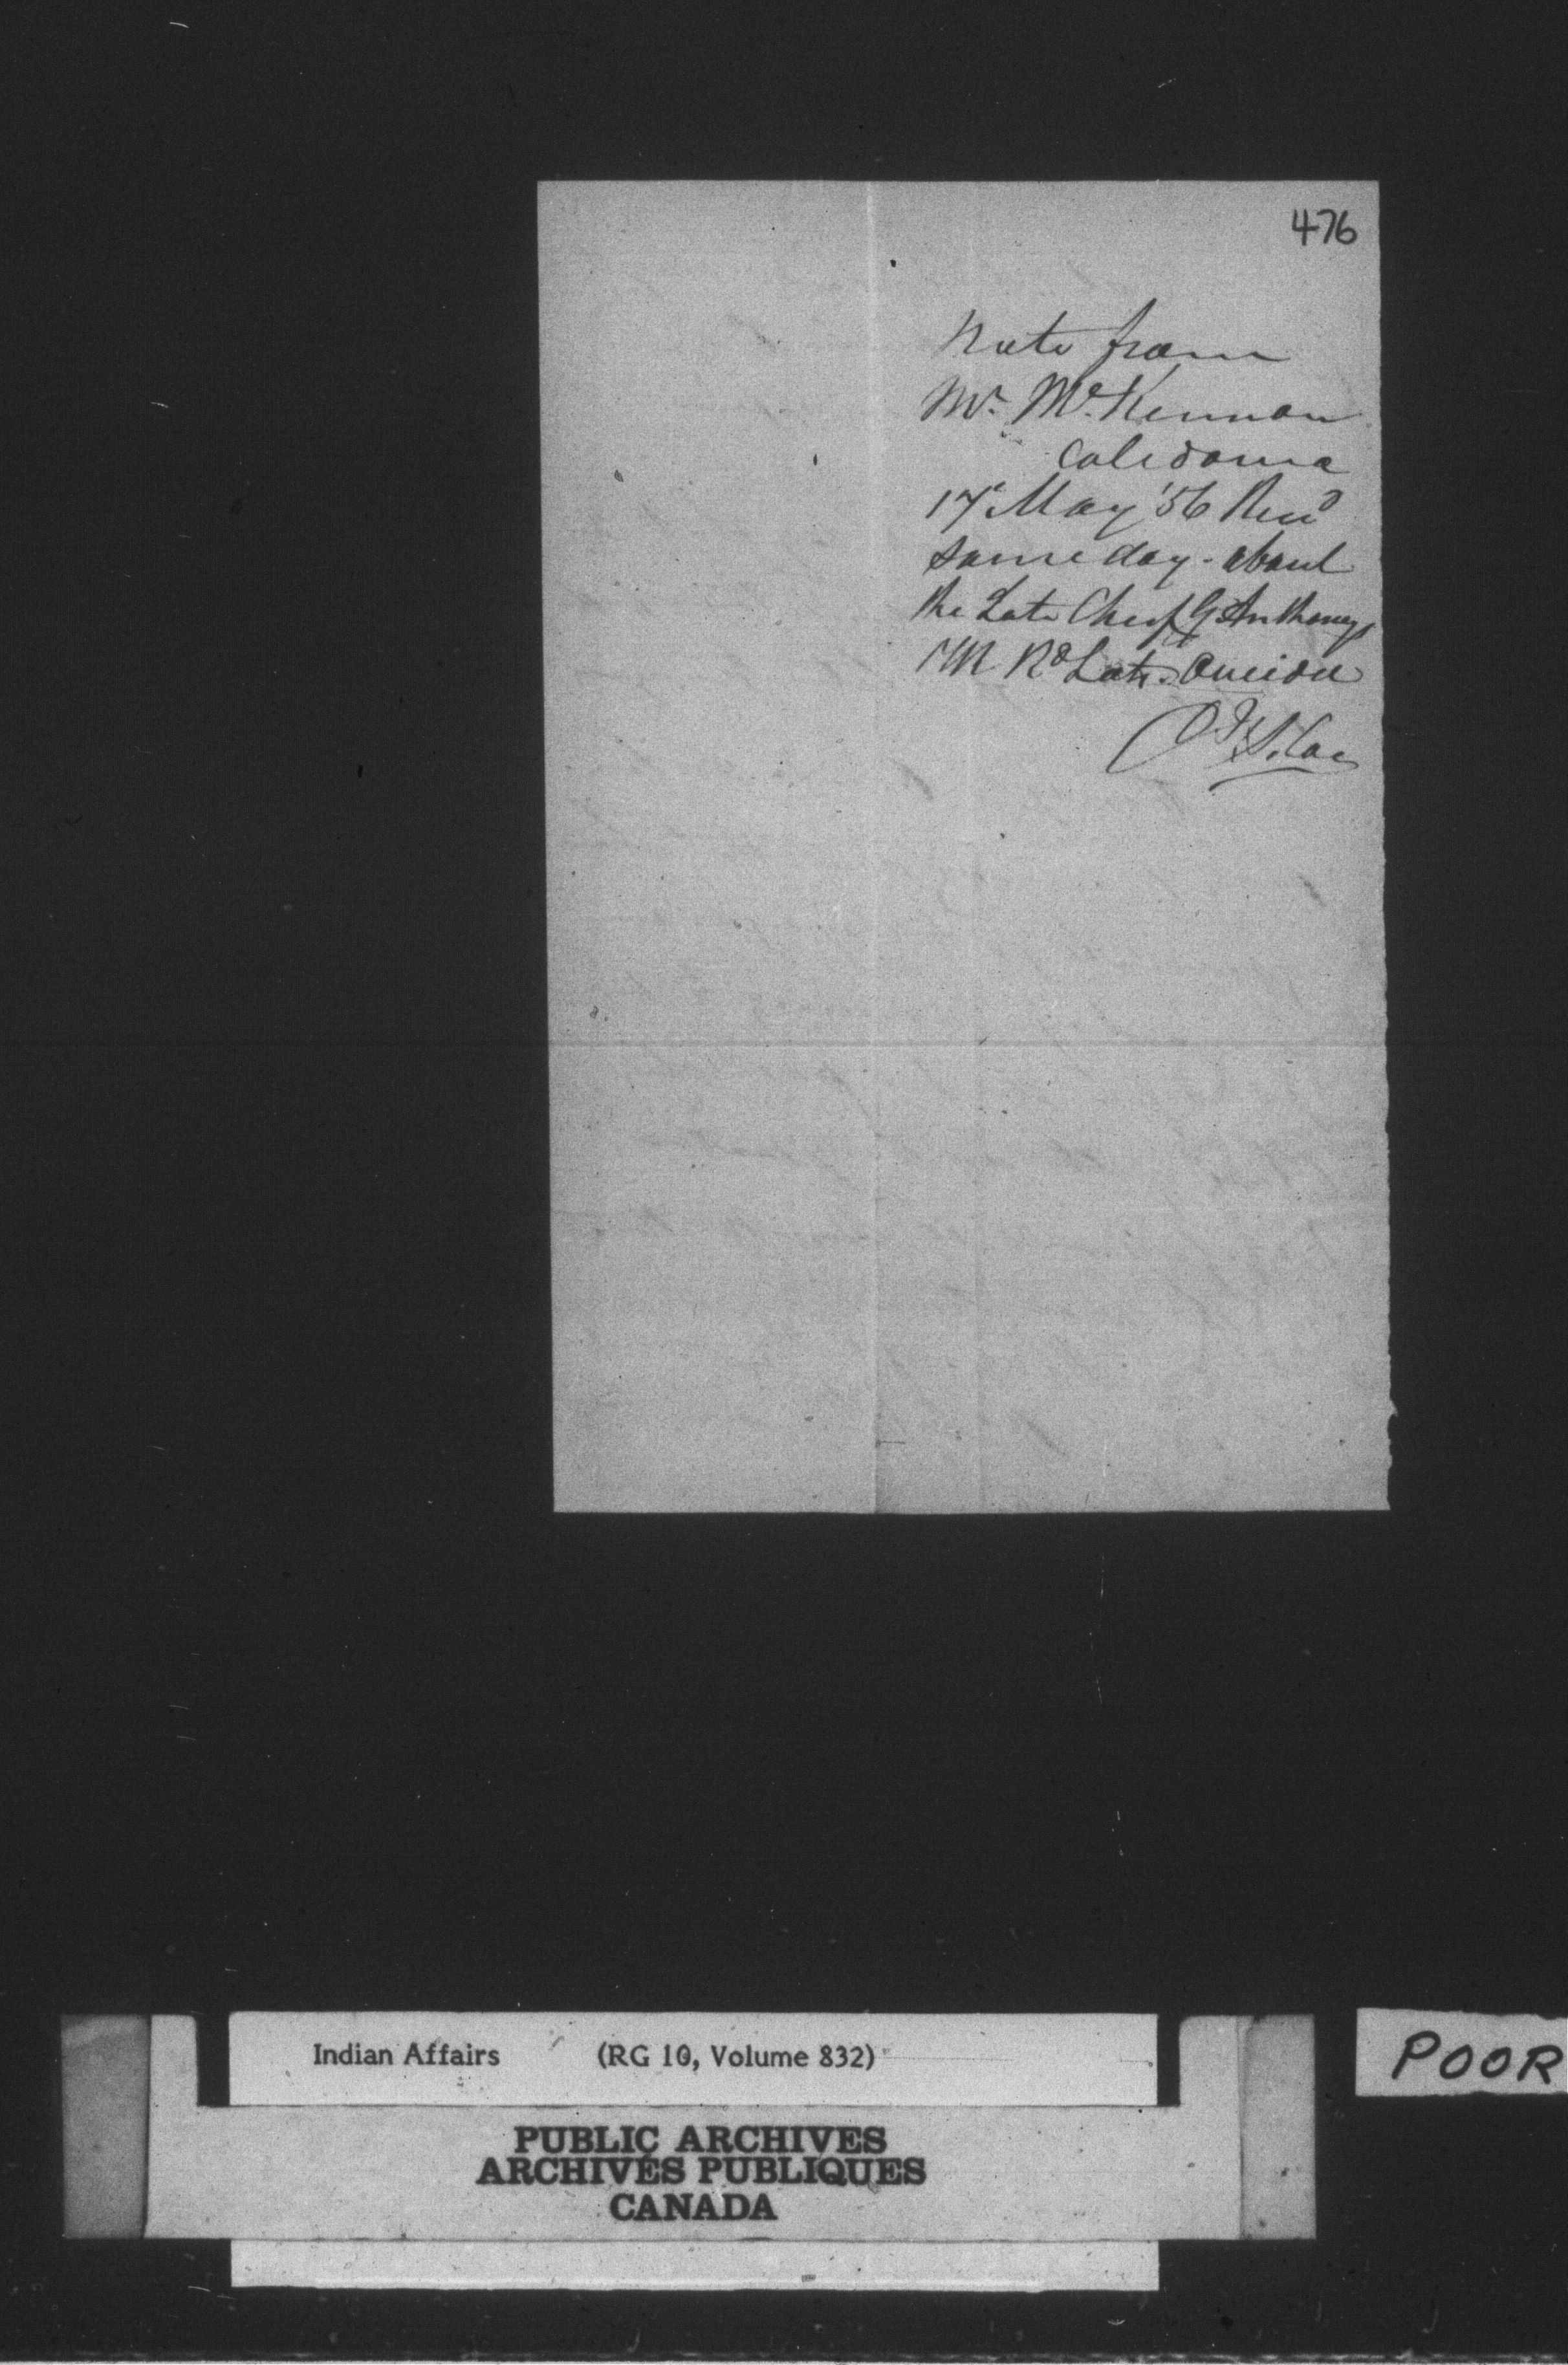 476
Note from
Mr. McKinnon
Caledonia
17 May '56 Recd
same day - about
the Late Chief G Anthony's
Rd Lots. Oneida
Indian Affairs (RG 10, Volume 832)
PUBLIC ARCHIVES
ARCHIVES PUBLIQUES
CANADA
POOR